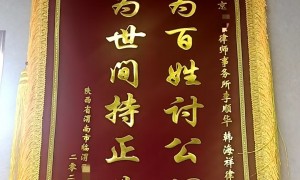 京
律师事务所李顺华 韩海祥律
为百姓讨公
为世间持正
陕西省渭南市临渭
二〇二